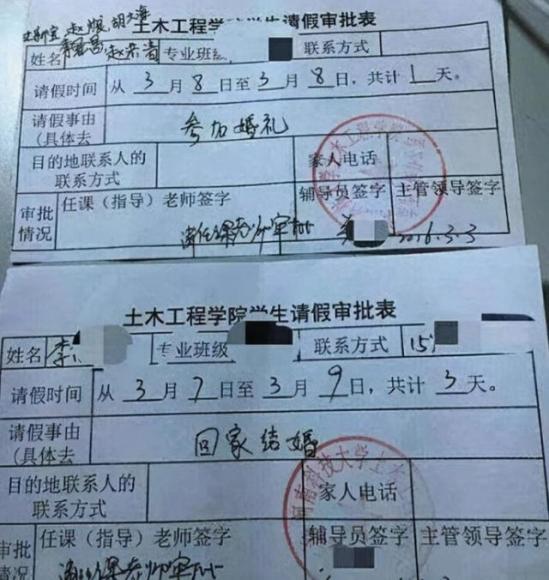 土木工程学院学生请假审批表
姓名 专业班级 联系方式
请假时间 从 3 月 8 日至 3 月 8 日，共计 1 天。
请假事由
(具体去
参加婚礼
目的地联系人的
联系方式
家人电话
审批
情况
任课（指导）老师签字
辅导员签字 主管领导签字
请任课老师审批
2016.3.3
土木工程学院学生请假审批表
姓名 李 专业班级 联系方式 15
请假时间 从 3 月 7 日至 3 月 9 日，共计 3 天。
请假事由
(具体去
回家结婚
河南科技大学土木
目的地联系人的
联系方式
家人电话
审批
情况
任课（指导）老师签字
辅导员签字 主管领导签字
请任课老师审批